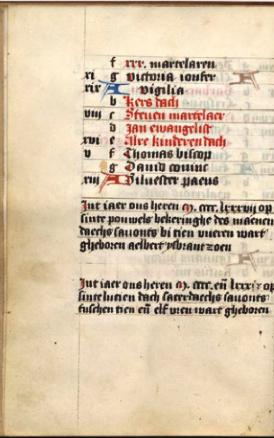 f xxx. martelaren
xi g Victoria ioufer
xix A vigilia
b kers dach
viii c Steuen martelaer
d Jan ewangelist
xvi e Alre kinderen dach
v f Thomas biscop
g Dauid coninc
xiii A Siluester paeus
Int iaer ons heren m. cccc. lxxxvii op
sinte pouwels bekeringhe des maenen
daechs sauonts bi tien vueren wart
gheboren aelbert ysbrant zoen
Int iaer ons heren m. cccc. en lxxxix op
sinte lucien dach saterdaechs sauonts
tuschen tien en elf vren wart gheboren